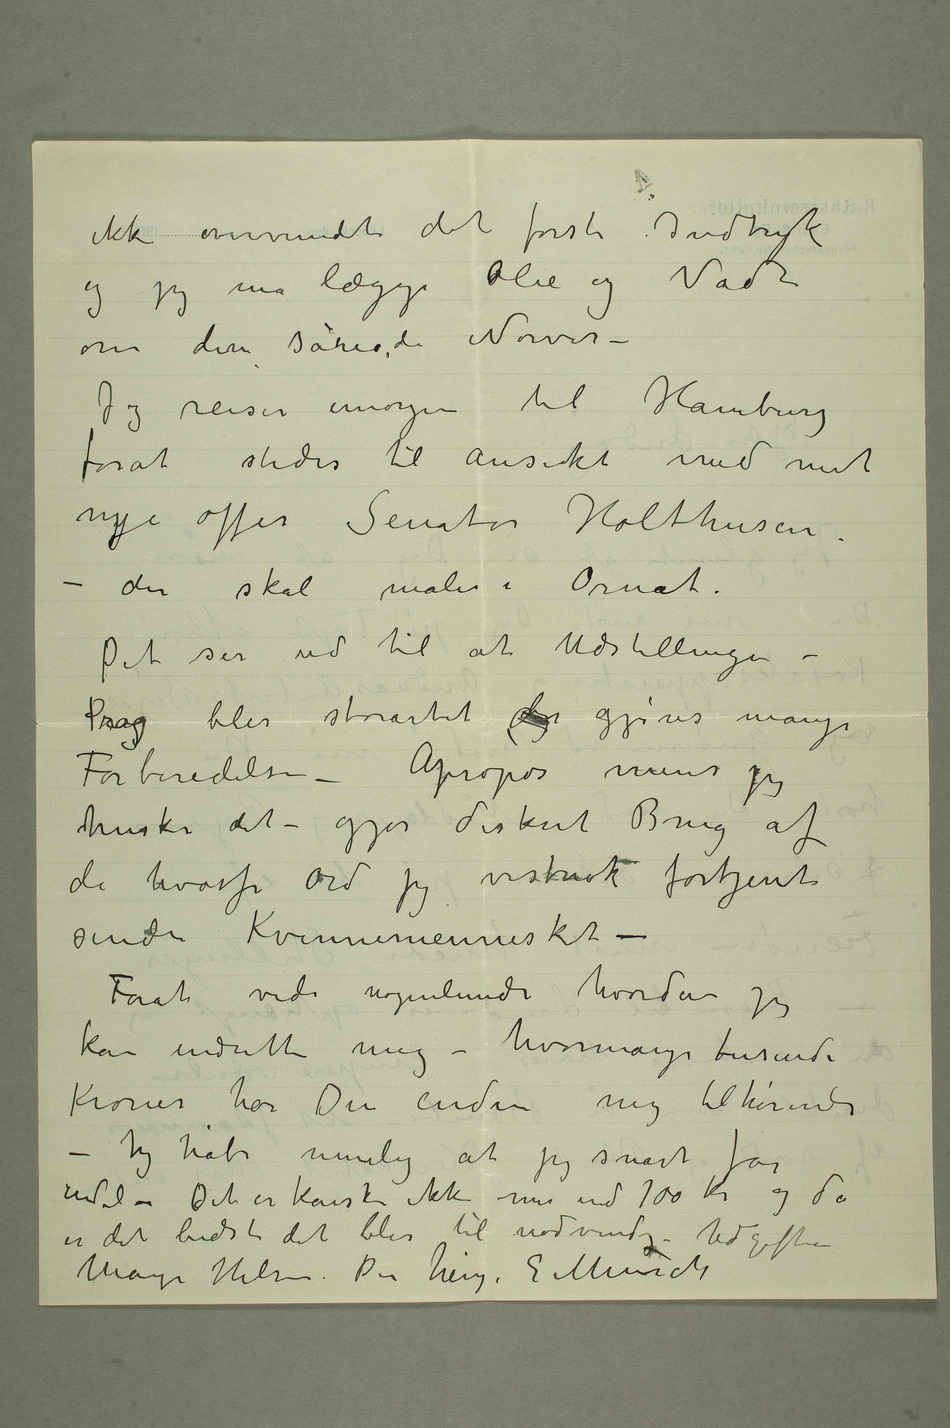 ikke overvundet det første Indtryk
og jeg må lægge Olie og Vadt
om den sårede Nerver –
Jeg reiser imorgen til Hamburg
forat stedes til ansikt med mit
nye offer Senator Holthusen.
– der skal males i Ornat.
Det ser ud til at Udstillingen –
Prag blir storartet der gjøres mange
Forberedelser – Apropos mens jeg
husker det – gjør diskret Brug af
de hvasse Ord jeg vistnok fortjent
sendte Kvinnemennesket –
Forat vide nogenlunde hvordan jeg
kan indrette mig – hvormange tusende
Kroner har Du endnu mig tilhørende
– Jeg håber nemlig at jeg snart får
endel – Det er kanske ikke mer end 700 Kr og da
er det bedst det blir til nødvendig Udgifter
Mange Hilsner. Din heng. E Munch